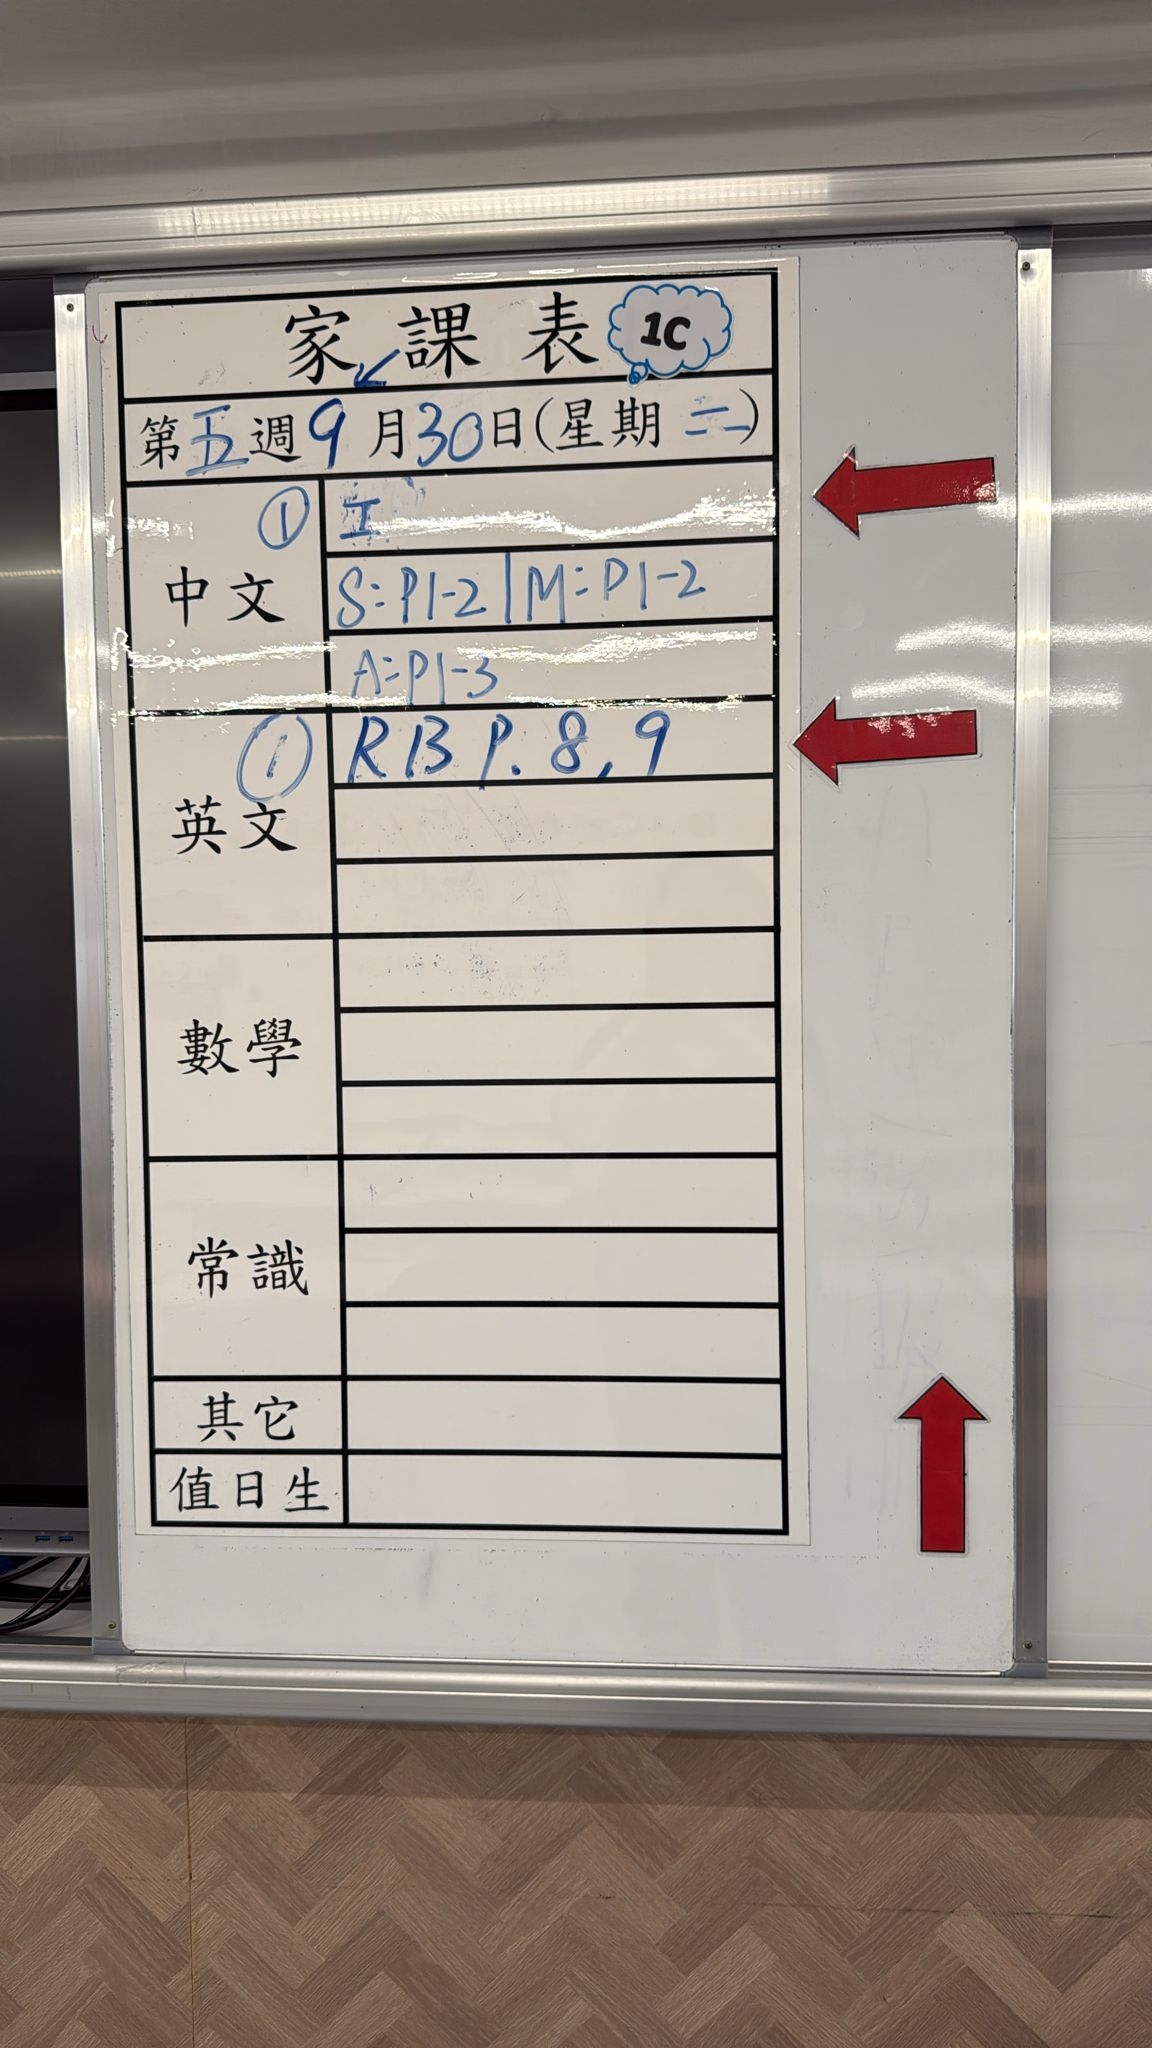 家課表 1C
第五週9月30日(星期二)
中文 ① 工
S:P1-2 | M:P1-2
A:P1-3
英文 ① RB P.8,9
數學
常識
其它
值日生